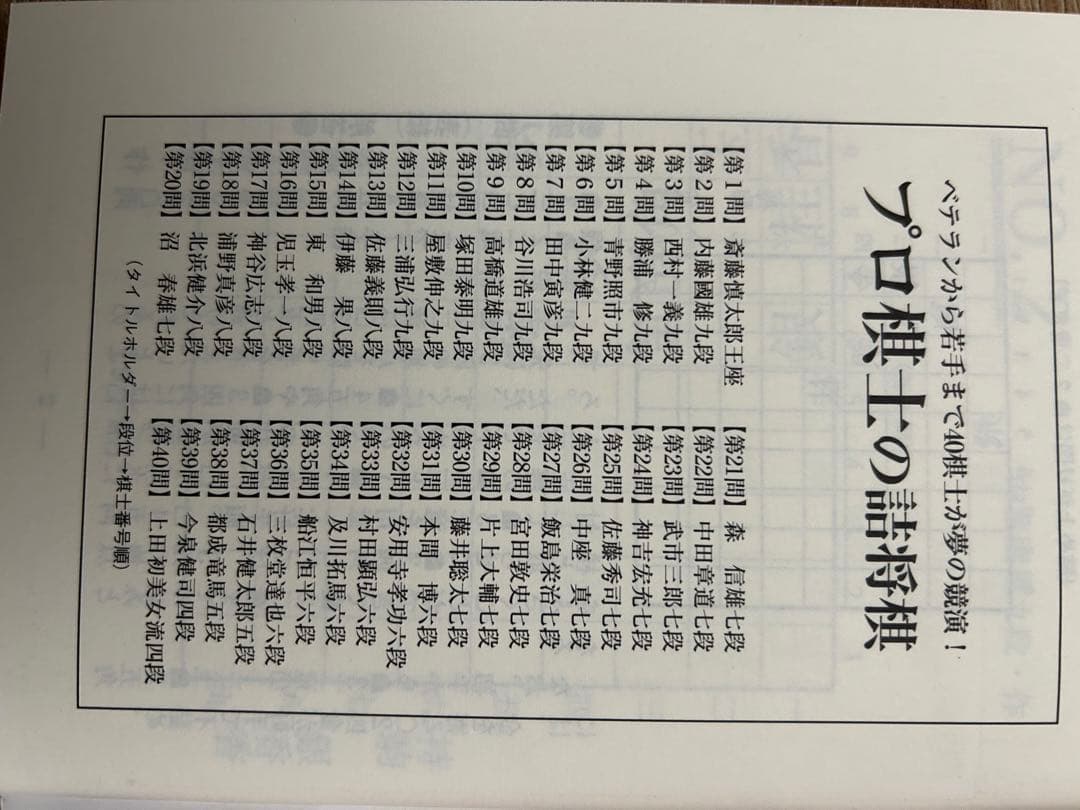 ベテランから若手まで40棋士が夢の競演！
プロ棋士の詰将棋
【第1問】 斎藤慎太郎王座
【第2問】 内藤國雄九段
【第3問】 西村一義九段
【第4問】 勝浦 修九段
【第5問】 青野照市九段
【第6問】 小林健二九段
【第7問】 田中寅彦九段
【第8問】 谷川浩司九段
【第9問】 高橋道雄九段
【第10問】 塚田泰明九段
【第11問】 屋敷伸之九段
【第12問】 三浦弘行九段
【第13問】 佐藤義則八段
【第14問】 伊藤 果八段
【第15問】 東 和男八段
【第16問】 児玉孝一八段
【第17問】 神谷広志八段
【第18問】 浦野真彦八段
【第19問】 北浜健介八段
【第20問】 沼 春雄七段
【第21問】 森 信雄七段
【第22問】 中田章道七段
【第23問】 武市三郎七段
【第24問】 神吉宏充七段
【第25問】 佐藤秀司七段
【第26問】 中座 真七段
【第27問】 飯島栄治七段
【第28問】 宮田敦史七段
【第29問】 片上大輔七段
【第30問】 藤井聡太七段
【第31問】 本間 博六段
【第32問】 安用寺孝功六段
【第33問】 村田顕弘六段
【第34問】 及川拓馬六段
【第35問】 船江恒平六段
【第36問】 三枚堂達也六段
【第37問】 石井健太郎五段
【第38問】 都成竜馬五段
【第39問】 今泉健司四段
【第40問】 上田初美女流四段
（タイトルホルダー→段位→棋士番号順）